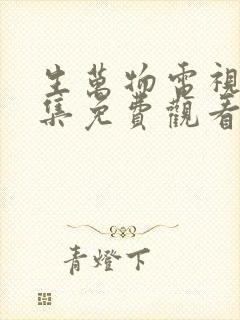 生萬物電視
集免費觀看
青燈下